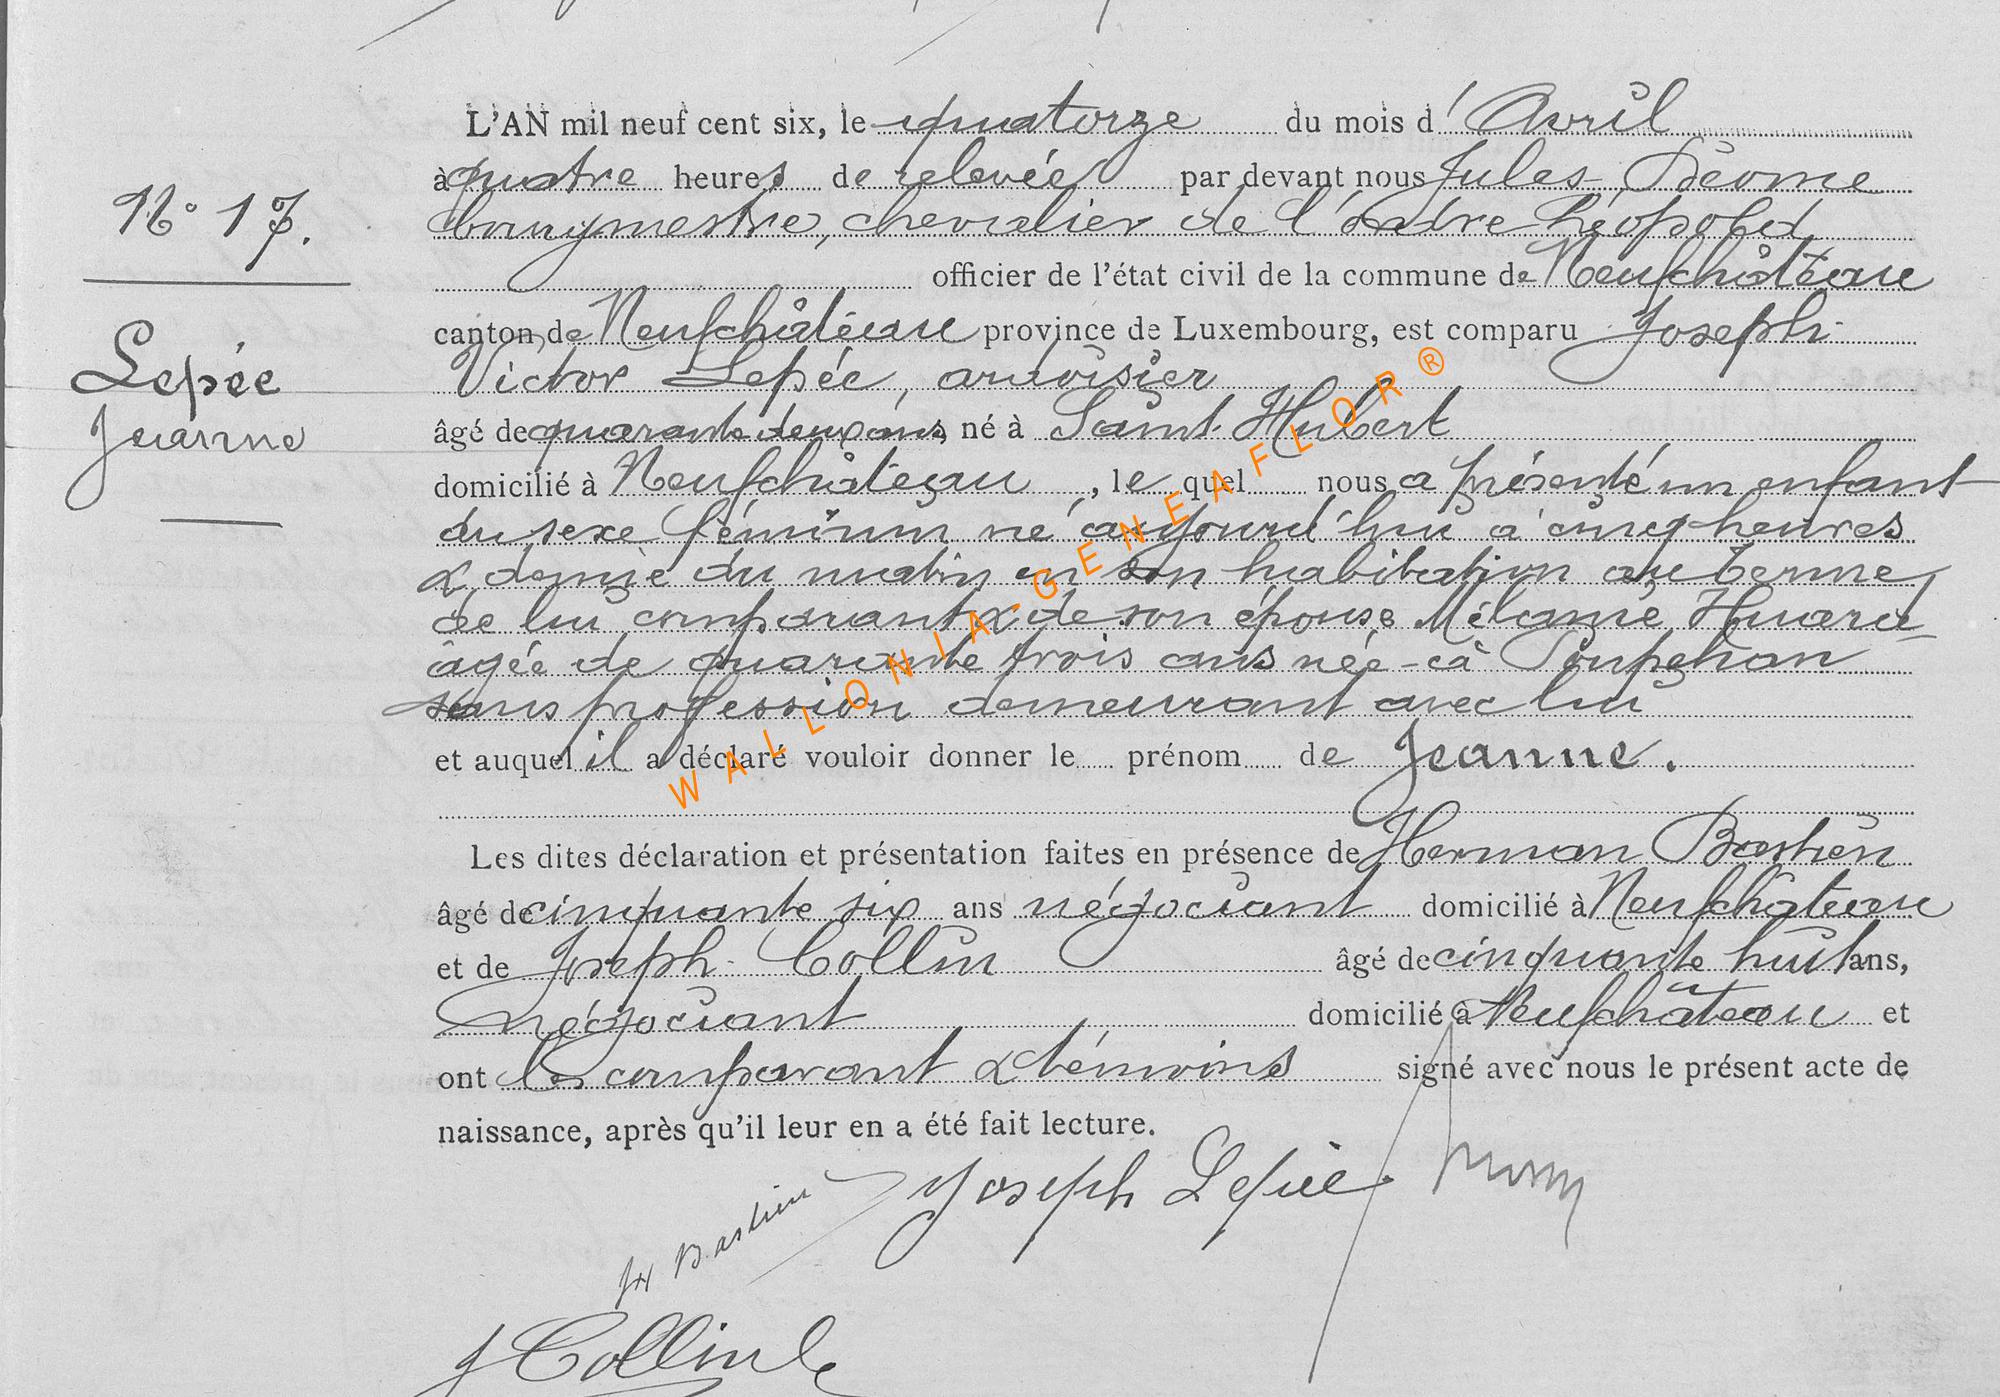 L'AN mil neuf cent six, le quatorze du mois d'Avril
à quatre heures de relevée par devant nous Jules
N° 17.
bourgmestre, chevalier de l'ordre Léopold
officier de l'état civil de la commune de Neufchâteau
canton de Neufchâteau province de Luxembourg, est comparu Joseph
Lepée
Jeanne
Victor Lepée, ardoisier
âgé de quarante deux ans, né à Saint-Hubert
domicilié à Neufchâteau, le quel nous a présenté un enfant
du sexe féminin né aujourd'hui à cinq heures
& demie du matin en son habitation au Terme,
de lui comparant & de son épouse Mélanie Huard
âgée de quarante trois ans née à Poupehan
sans profession demeurant avec lui
et auquel il a déclaré vouloir donner le prénom de Jeanne.
Les dites déclaration et présentation faites en présence de Herman Bastien
âgé de cinquante six ans négociant domicilié à Neufchâteau
et de Joseph Collin âgé de cinquante huit ans,
négociant domicilié à Neufchâteau et
ont les comparant & témoins signé avec nous le présent acte de
naissance, après qu'il leur en a été fait lecture.
Joseph Lepée
Bastien
J Collin
WALLONIA-GENEAFLOR®